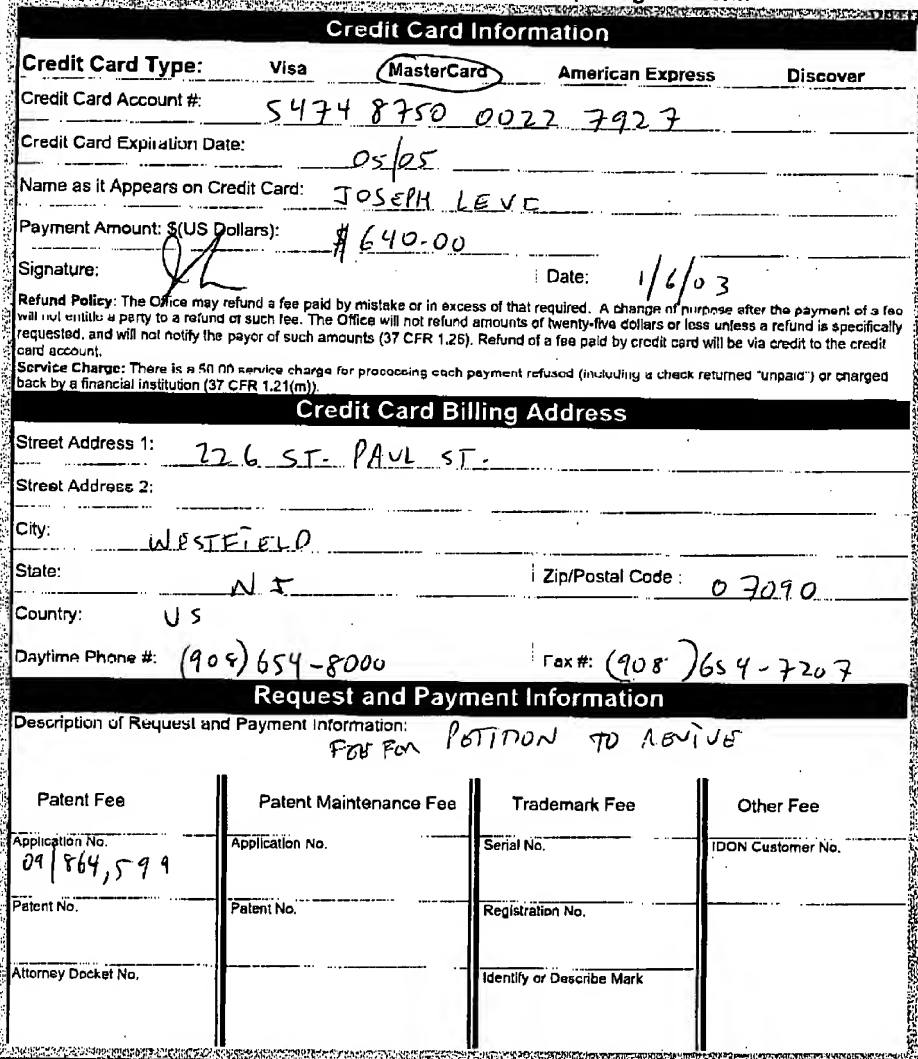 Credit Card Information
Credit Card Type: Visa MasterCard American Express Discover
Credit Card Account #: 5474 8750 0022 7927
Credit Card Expiration Date: 05/05
Name as it Appears on Credit Card: JOSEPH LEVE
Payment Amount: $(US Dollars): $ 640.00
Signature: Date: 1/6/03
Refund Policy: The Office may refund a fee paid by mistake or in excess of that required. A change of purpose after the payment of a fee
will not entitle a party to a refund of such fee. The Office will not refund amounts of twenty-five dollars or less unless a refund is specifically
requested, and will not notify the payor of such amounts (37 CFR 1.26). Refund of a fee paid by credit card will be via credit to the credit
card account.
Service Charge: There is a 50.00 service charge for processing each payment refused (including a check returned "unpaid") or charged
back by a financial institution (37 CFR 1.21(m)).
Credit Card Billing Address
Street Address 1: 226 ST. PAUL ST.
Street Address 2:
City: WESTFIELD
State: NJ Zip/Postal Code : 07090
Country: US
Daytime Phone #: (908) 654-8000 Fax #: (908 ) 654-7207
Request and Payment Information
Description of Request and Payment Information:
FEE FOR PETITION TO REVIVE
Patent Fee Patent Maintenance Fee Trademark Fee Other Fee
Application No. Application No. Serial No. IDON Customer No.
09/864,599
Patent No. Patent No. Registration No.
Attorney Docket No. Identify or Describe Mark